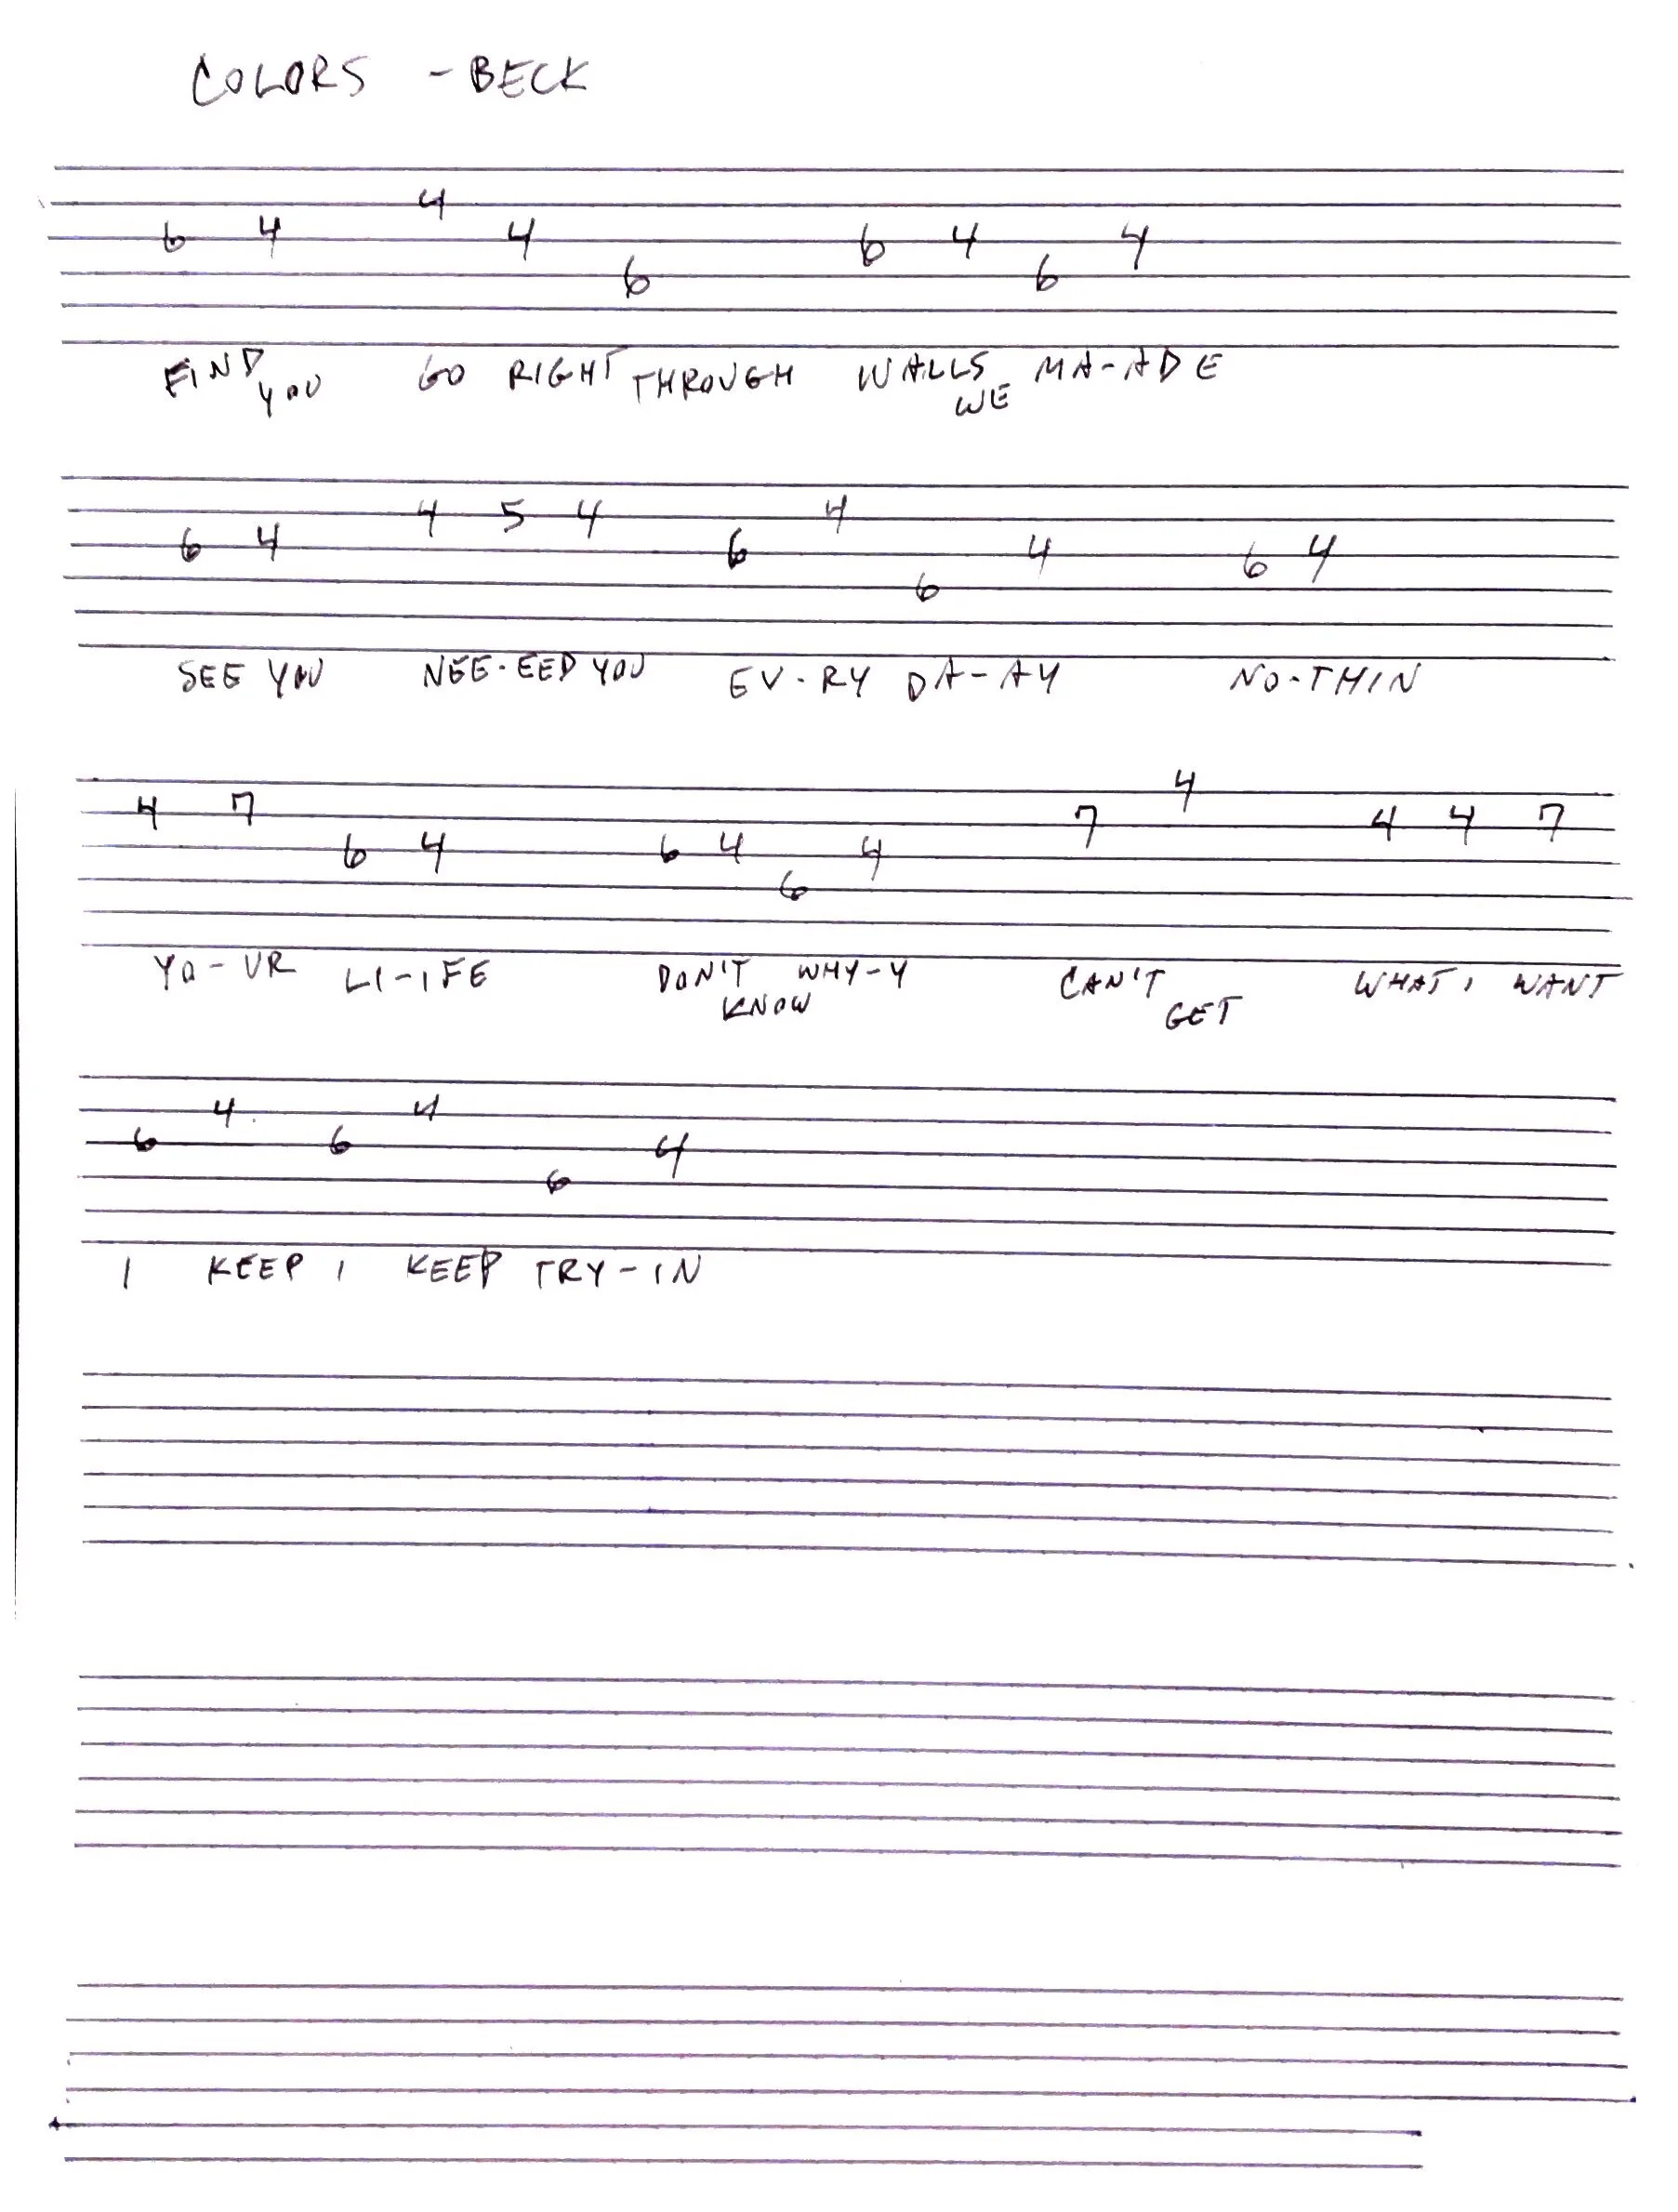 COLORS - BECK
4
6 4 4 6 4 4
6 6
FIND GO RIGHT THROUGH WALLS MA-ADE
YOU WE
4 5 4 4
6 4 6 4 6 4
6
SEE YOU NEE-EED YOU EV-RY DA-AY NO-THIN
4
4 7 7 4 4 7
6 4 6 4 4
6
YO-UR LI-IFE DON'T WHY-Y CAN'T WHAT I WANT
KNOW GET
4 4
6 6 4
6
I KEEP I KEEP TRY-IN